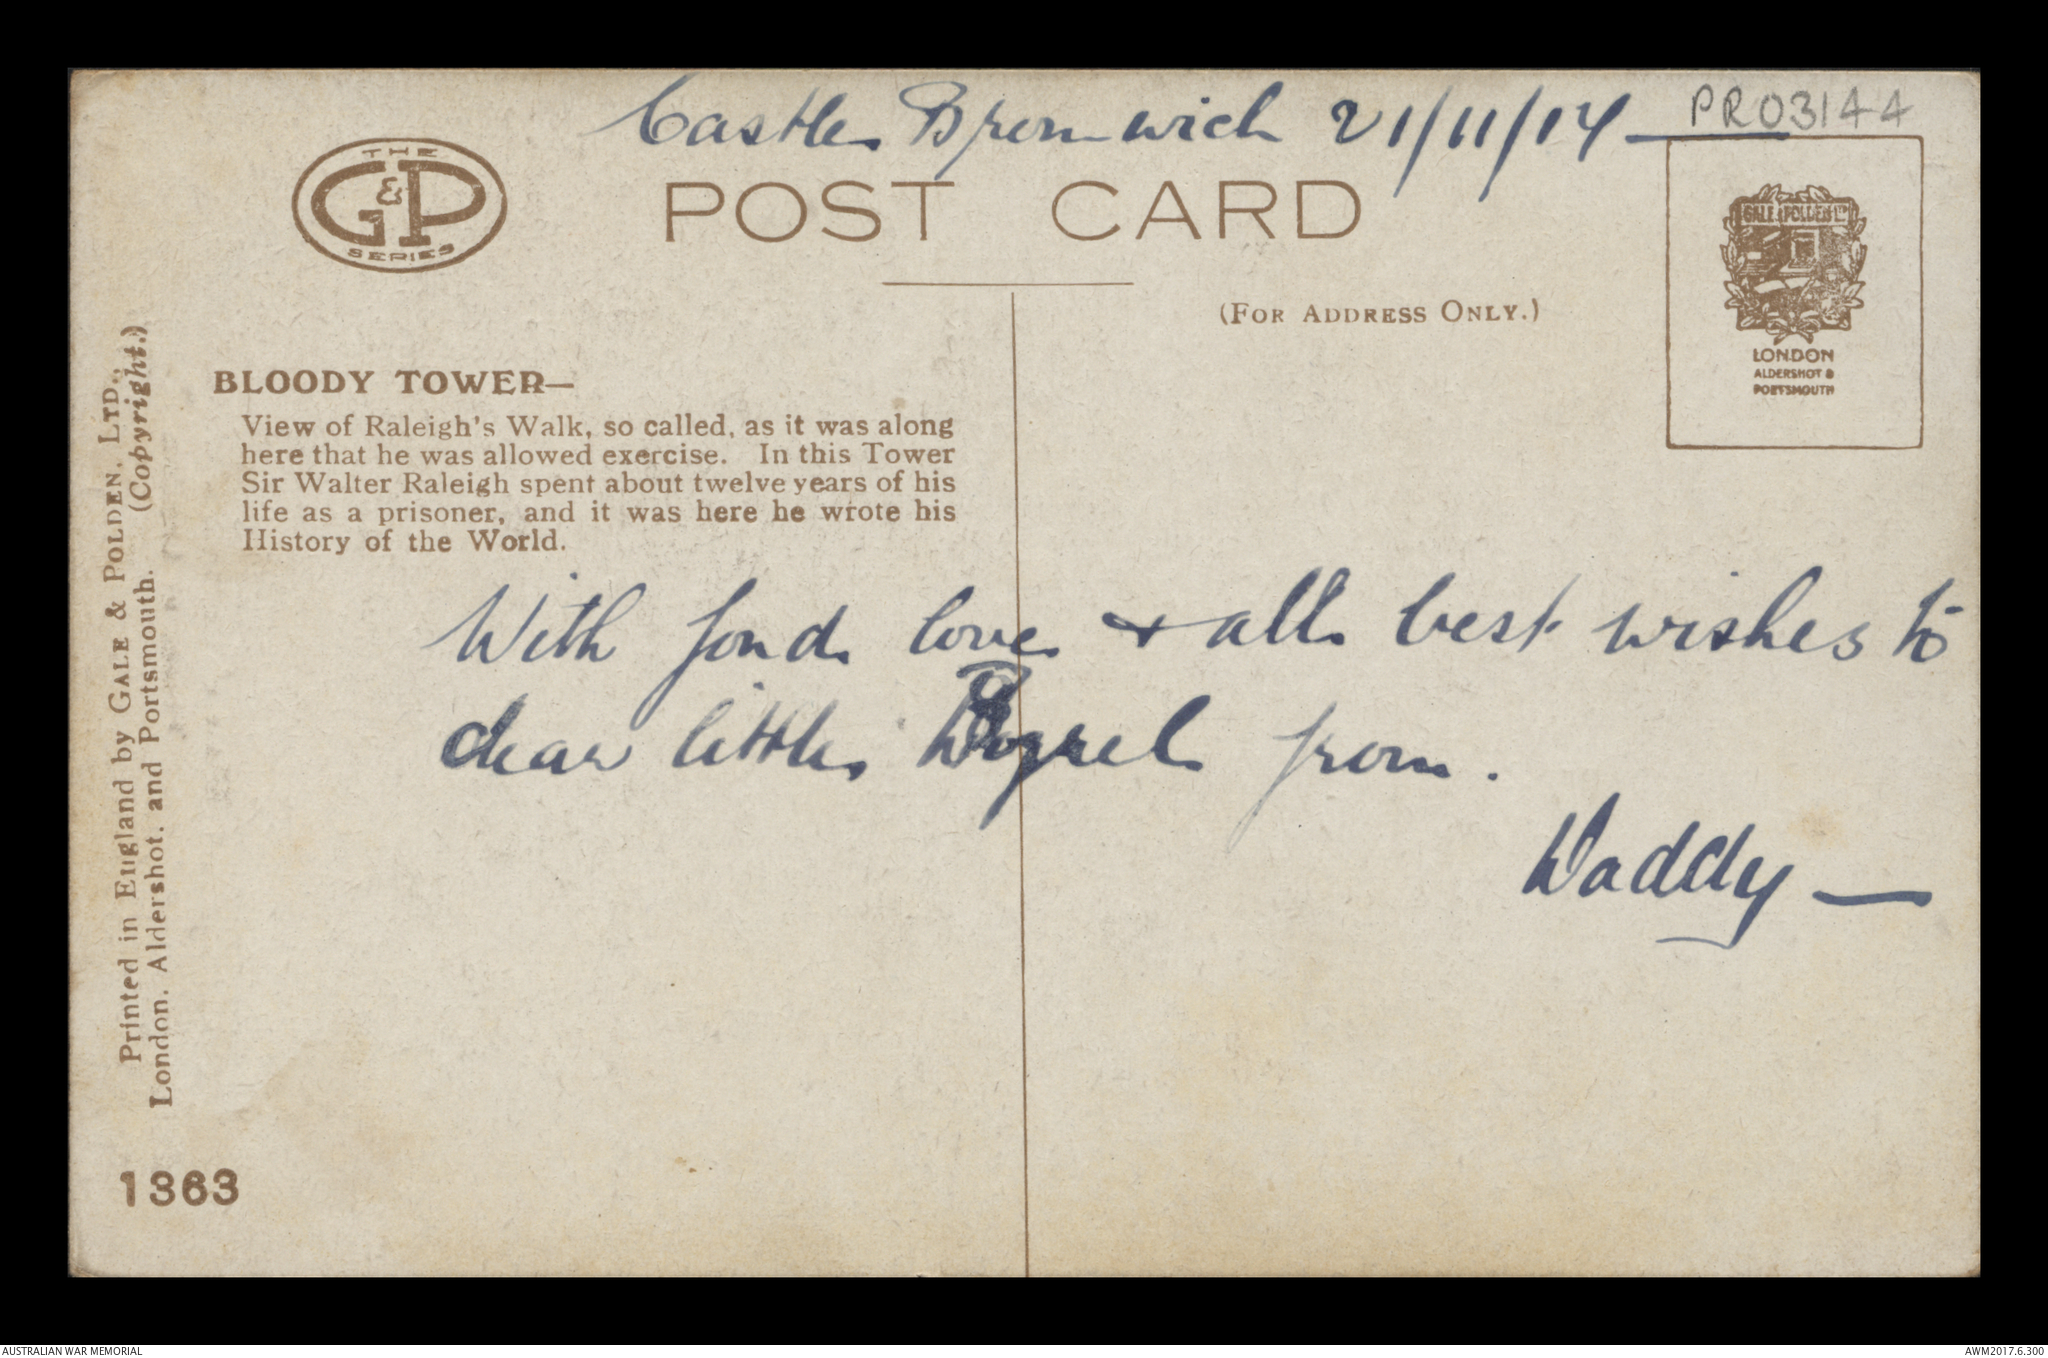 Castle Bromwich 21/11/17 —
PR03144
THE
G&P
SERIES
POST CARD
GALE & POLDEN LTD
LONDON
ALDERSHOT &
PORTSMOUTH
(FOR ADDRESS ONLY.)
BLOODY TOWER—
View of Raleigh's Walk, so called, as it was along
here that he was allowed exercise. In this Tower
Sir Walter Raleigh spent about twelve years of his
life as a prisoner, and it was here he wrote his
History of the World.
With fond love & all best wishes to
dear little from.
Daddy —
Printed in England by GALE & POLDEN, LTD.,
London, Aldershot, and Portsmouth. (Copyright.)
1363
AUSTRALIAN WAR MEMORIAL
AWM2017.6.300